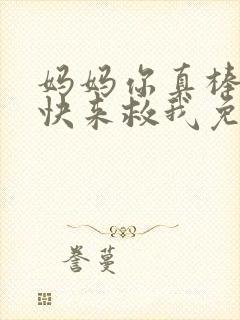 妈妈你真棒
快来救我免
誉蔓